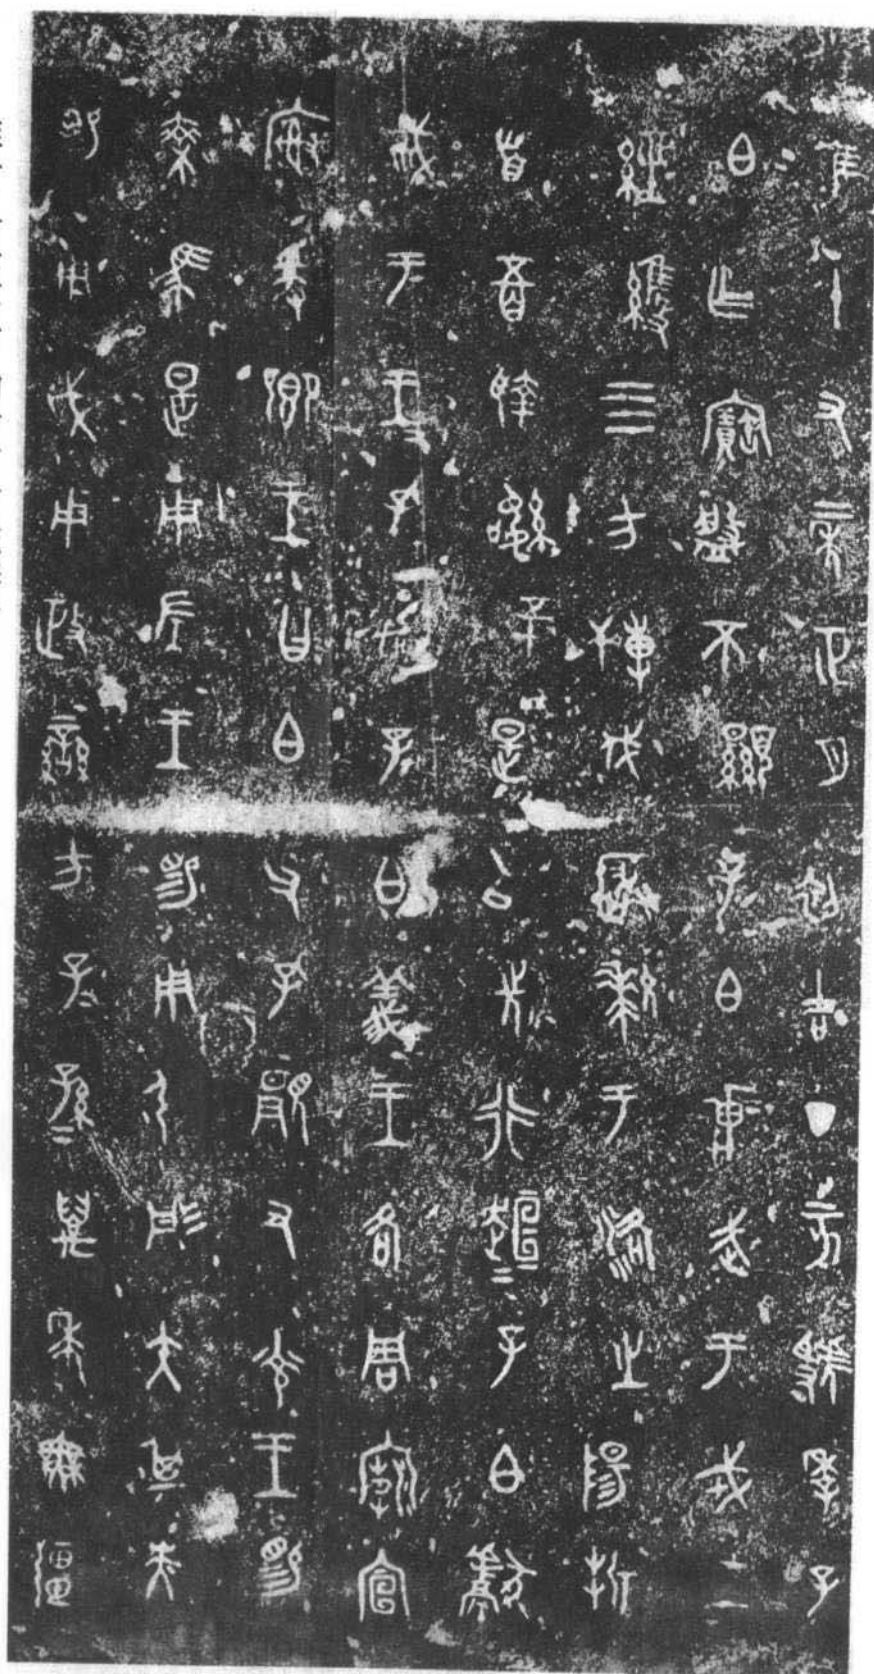 隹十又二年正月初吉丁亥虢季子
白乍寶盤不顯子白壯武于戎工
經維四方搏伐玁狁于洛之陽折
首五百執訊五十是以先行趄₌子白獻
馘于王₌孔加子白義王各周廟宣
廚爰鄉王曰白父孔顯又光王賜
乘馬是用左王賜用弓彤矢其央
賜用戉用政蠻方子₌孫₌萬年無疆